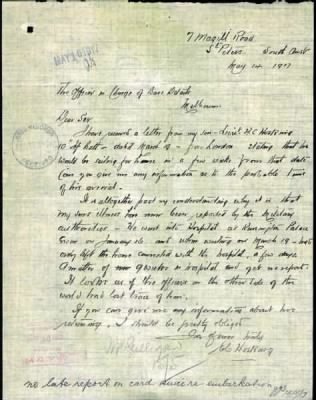 7 Magill Road
St Peters South Aust
May 14 1917
MAY 16 1917
The Officer in Charge of Base Details
Melbourne
Dear Sir
I have received a letter from my son
dated March 19 from London stating that he
would be sailing for home in a few weeks from that date
Can you give me any information as to the probable time
of his arrival.
It is altogether past my understanding why it is that
my sons illness has never been reported by the Military
authorities - He went into Hospital at Kensington Palace
Green on January and when writing on March 19 had
only left the home connected with the hospital a few days
A matter of nine weeks in hospital and yet no report.
It looks as if the officers on the other side of the
world had lost trace of him.
If you can give me any information about his
returning I should be greatly obliged
I am yours truly
Hosking
no late report on card advice re embarkation